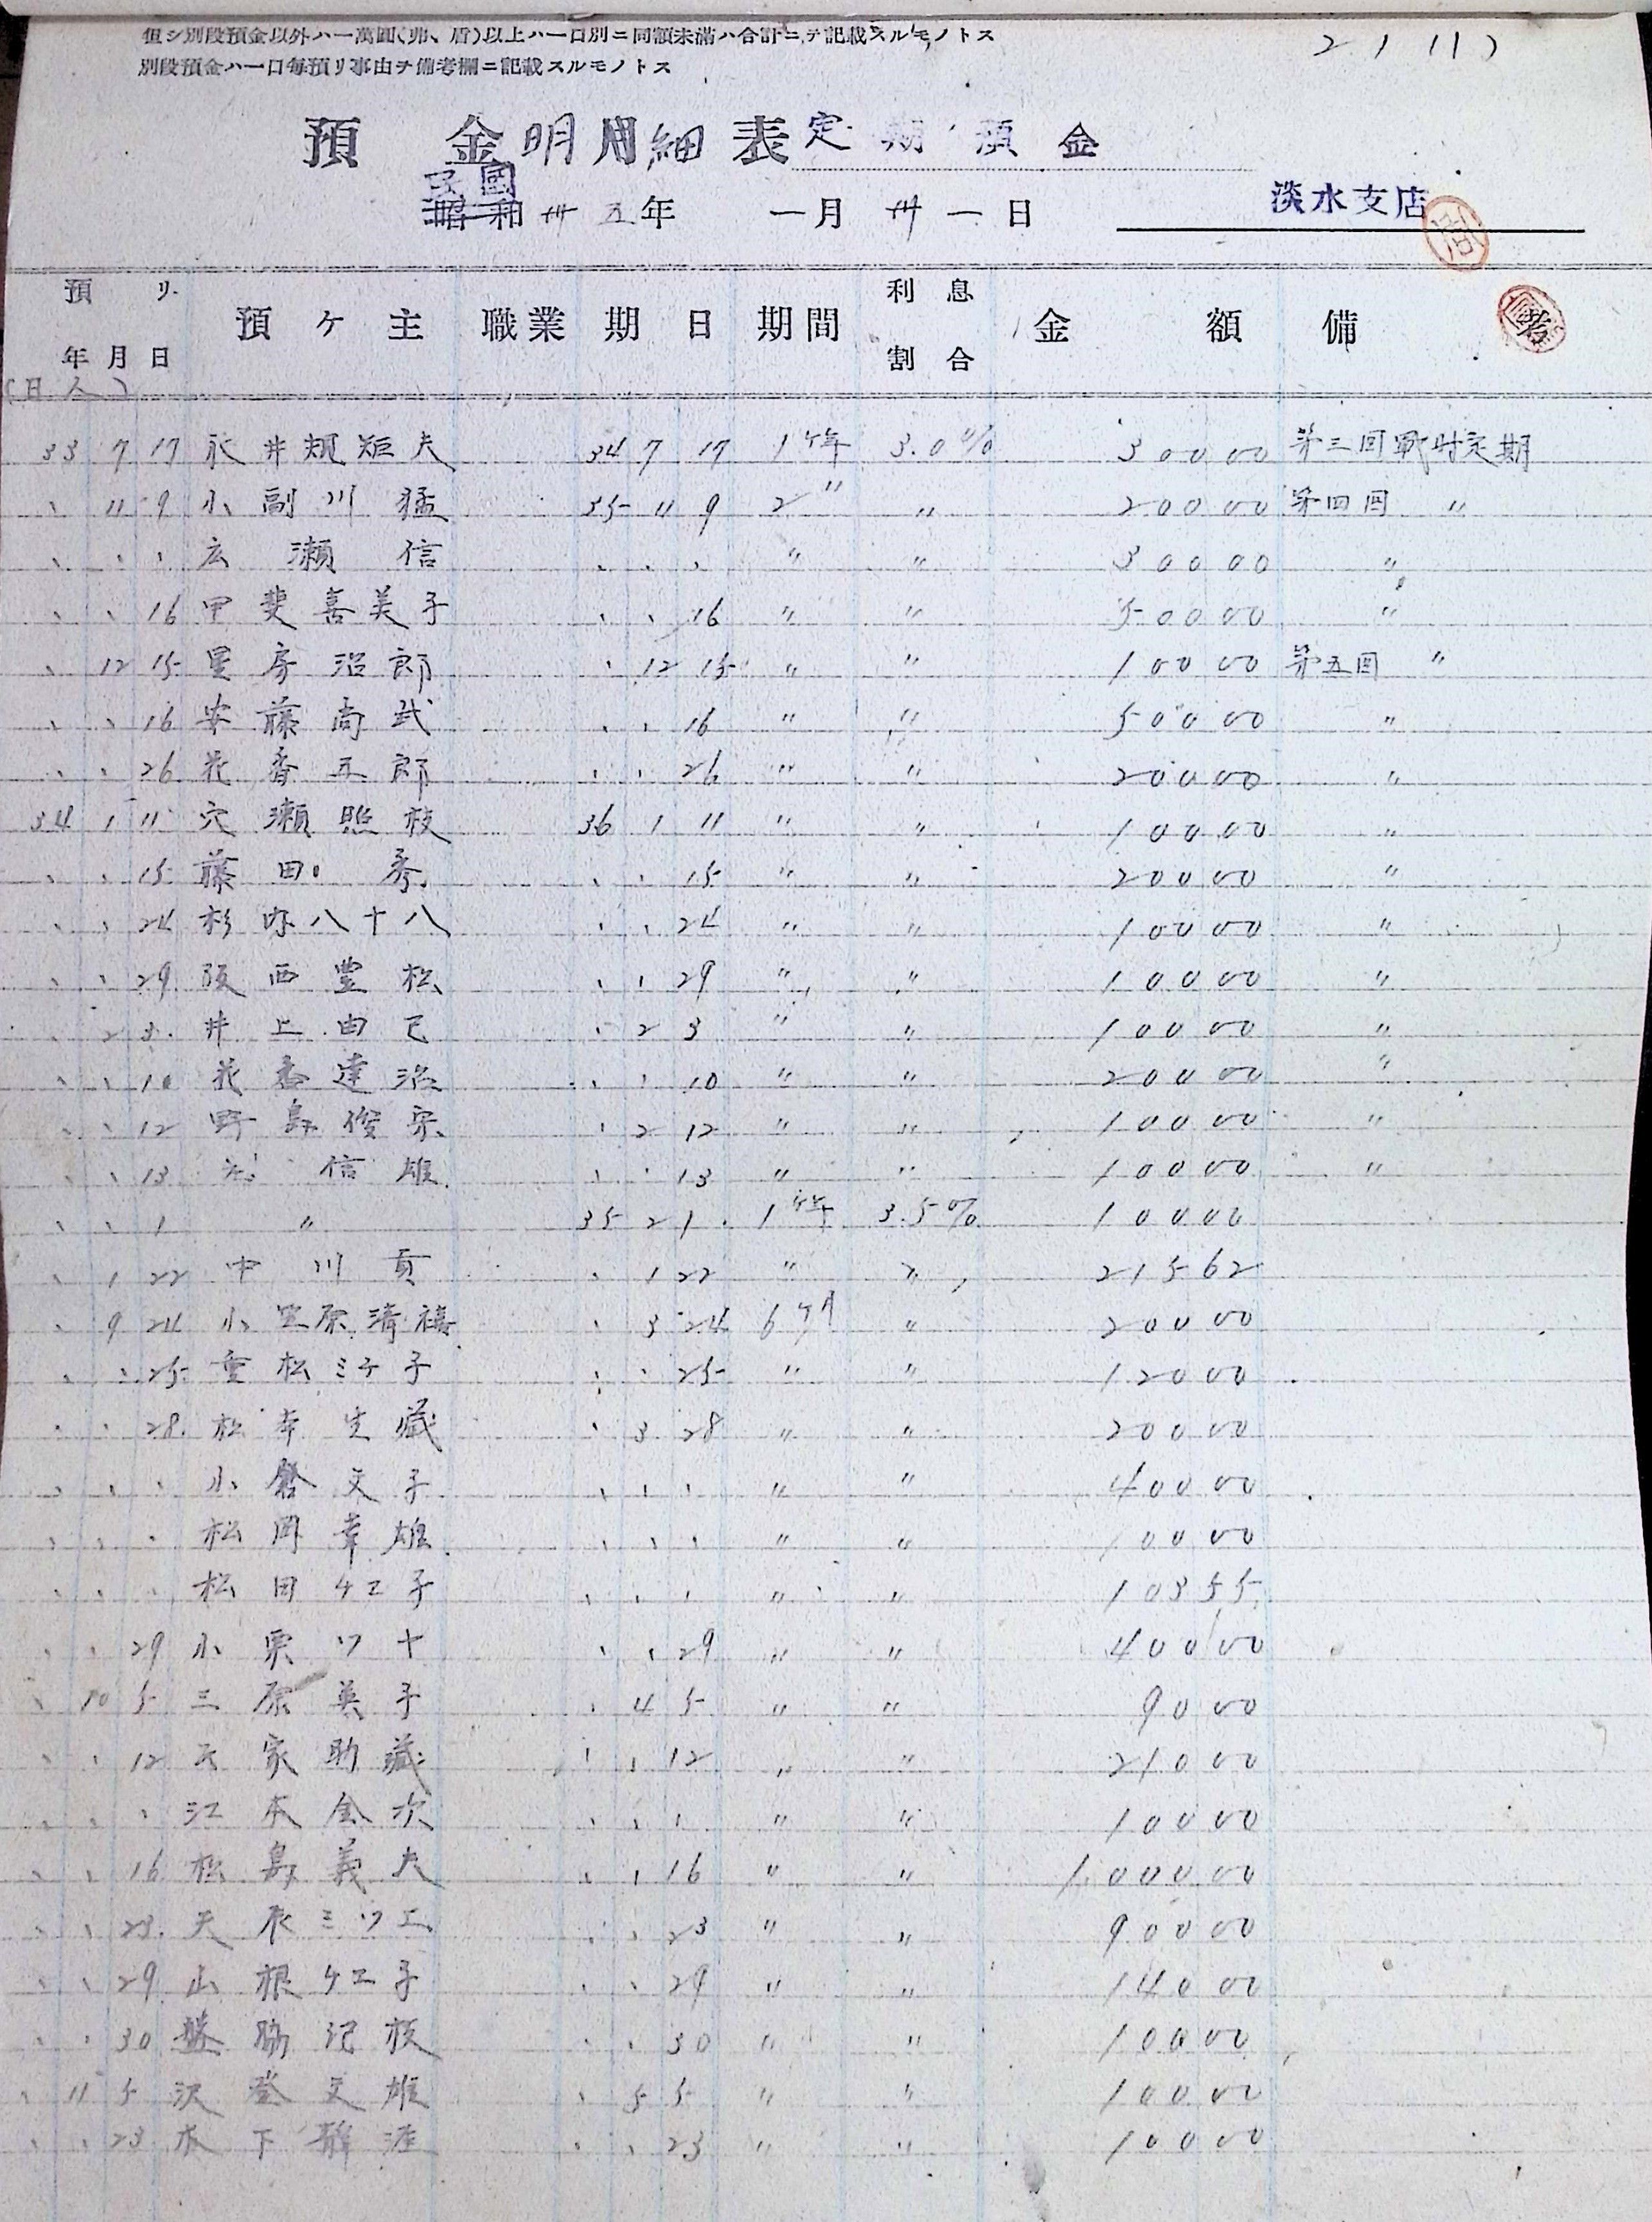 但シ別段預金以外ハ一萬圓(弗、盾)以上ハ一口別ニ同額未滿ハ合計ニテ記載スルモノトス
別段預金ハ一口每預リ事由ヲ備考欄ニ記載スルモノトス
21 (1)
預金明細表 定期預金
民國
昭和 卅五年 一月 卅一日 淡水支店
預リ年月日 預ケ主 職業 期日 期間 利息割合 金額 備考
(日人)
33 7 17 永井規矩夫 34 7 17 1ケ年 3.0% 30000 第三回戰時定期
、 11 9 小副川猛 35 11 9 2〃 〃 20000 第四回 〃
、 、 、 広瀬信 、 、 、 〃 〃 30000 〃
、 、 16 甲斐喜美子 、 、 16 〃 〃 50000 〃
、 12 15 里房治郎 、 12 15 〃 〃 10000 第五回 〃
、 、 16 安藤尚武 、 、 16 〃 〃 50000 〃
、 、 26 花香五郎 、 、 26 〃 〃 20000 〃
34 1 11 穴瀬照枝 36 1 11 〃 〃 10000 〃
、 、 15 藤田 、 、 15 〃 〃 20000 〃
、 、 24 杉 八十八 、 、 24 〃 〃 10000 〃
、 、 29 阪西豊松 、 、 29 〃 〃 10000 〃
、 2 3 井上由己 、 2 3 〃 〃 10000 〃
、 、 10 花香達治 、 、 10 〃 〃 20000 〃
、 、 12 野島俊宗 、 2 12 〃 〃 10000 〃
、 、 13 信雄 、 、 13 〃 〃 10000 〃
、 、 1 〃 35 2 1 1ケ年 3.5% 10000
、 1 22 中川貢 、 1 22 〃 〃 21562
、 9 24 小笠原清禧 、 3 24 6ケ月 〃 20000
、 、 25 重松ミチ子 、 、 25 〃 〃 12000
、 、 28 松本生藏 、 3 28 〃 〃 20000
、 、 、 小 文子 、 、 、 〃 〃 40000
、 、 、 松岡幸雄 、 、 、 〃 〃 10000
、 、 、 松田チエ子 、 、 、 〃 〃 10355
、 、 29 小栗ツヤ 、 、 29 〃 〃 40000
、 10 5 三原英子 、 4 5 〃 〃 9000
、 、 12 家助藏 、 、 12 〃 〃 21000
、 、 、 江本金次 、 、 、 〃 〃 10000
、 、 16 松島義夫 、 、 16 〃 〃 100000
、 、 23 天辰ミツエ 、 、 23 〃 〃 90000
、 、 29 山根チエ子 、 、 29 〃 〃 14000
、 、 30 脇記枝 、 、 30 〃 〃 10000
、 11 5 沢登文雄 、 5 5 〃 〃 10000
、 、 23 木下 、 、 23 〃 〃 10000